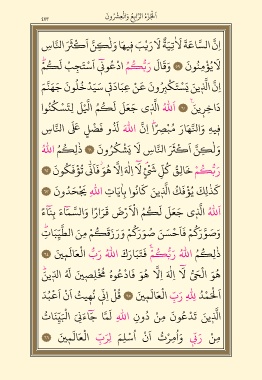 اَلْجُزْءُ الرَّابِعُ وَالْعِشْرُونَ
اِنَّ السَّاعَةَ لَاٰتِيَةٌ لَا رَيْبَ فِيهَا وَلٰكِنَّ اَكْثَرَ النَّاسِ
لَا يُؤْمِنُونَ وَقَالَ رَبُّكُمُ ادْعُونِٓي اَسْتَجِبْ لَكُمْ
اِنَّ الَّذِينَ يَسْتَكْبِرُونَ عَنْ عِبَادَتِي سَيَدْخُلُونَ جَهَنَّمَ
دَاخِرِينَ اَللّٰهُ الَّذِي جَعَلَ لَكُمُ الَّيْلَ لِتَسْكُنُوا
فِيهِ وَالنَّهَارَ مُبْصِرًا اِنَّ اللّٰهَ لَذُو فَضْلٍ عَلَى النَّاسِ
وَلٰكِنَّ اَكْثَرَ النَّاسِ لَا يَشْكُرُونَ ذٰلِكُمُ اللّٰهُ
رَبُّكُمْ خَالِقُ كُلِّ شَيْءٍ لَٓا اِلٰهَ اِلَّا هُوَ فَاَنّٰى تُؤْفَكُونَ
كَذٰلِكَ يُؤْفَكُ الَّذِينَ كَانُوا بِاٰيَاتِ اللّٰهِ يَجْحَدُونَ
اَللّٰهُ الَّذِي جَعَلَ لَكُمُ الْاَرْضَ قَرَارًا وَالسَّمَٓاءَ بِنَٓاءً
وَصَوَّرَكُمْ فَاَحْسَنَ صُوَرَكُمْ وَرَزَقَكُمْ مِنَ الطَّيِّبَاتِ
ذٰلِكُمُ اللّٰهُ رَبُّكُمْ فَتَبَارَكَ اللّٰهُ رَبُّ الْعَالَمِينَ
هُوَ الْحَيُّ لَٓا اِلٰهَ اِلَّا هُوَ فَادْعُوهُ مُخْلِصِينَ لَهُ الدِّينَ
اَلْحَمْدُ لِلّٰهِ رَبِّ الْعَالَمِينَ قُلْ اِنِّي نُهِيتُ اَنْ اَعْبُدَ
الَّذِينَ تَدْعُونَ مِنْ دُونِ اللّٰهِ لَمَّا جَٓاءَنِيَ الْبَيِّنَاتُ
مِنْ رَبِّي وَاُمِرْتُ اَنْ اُسْلِمَ لِرَبِّ الْعَالَمِينَ